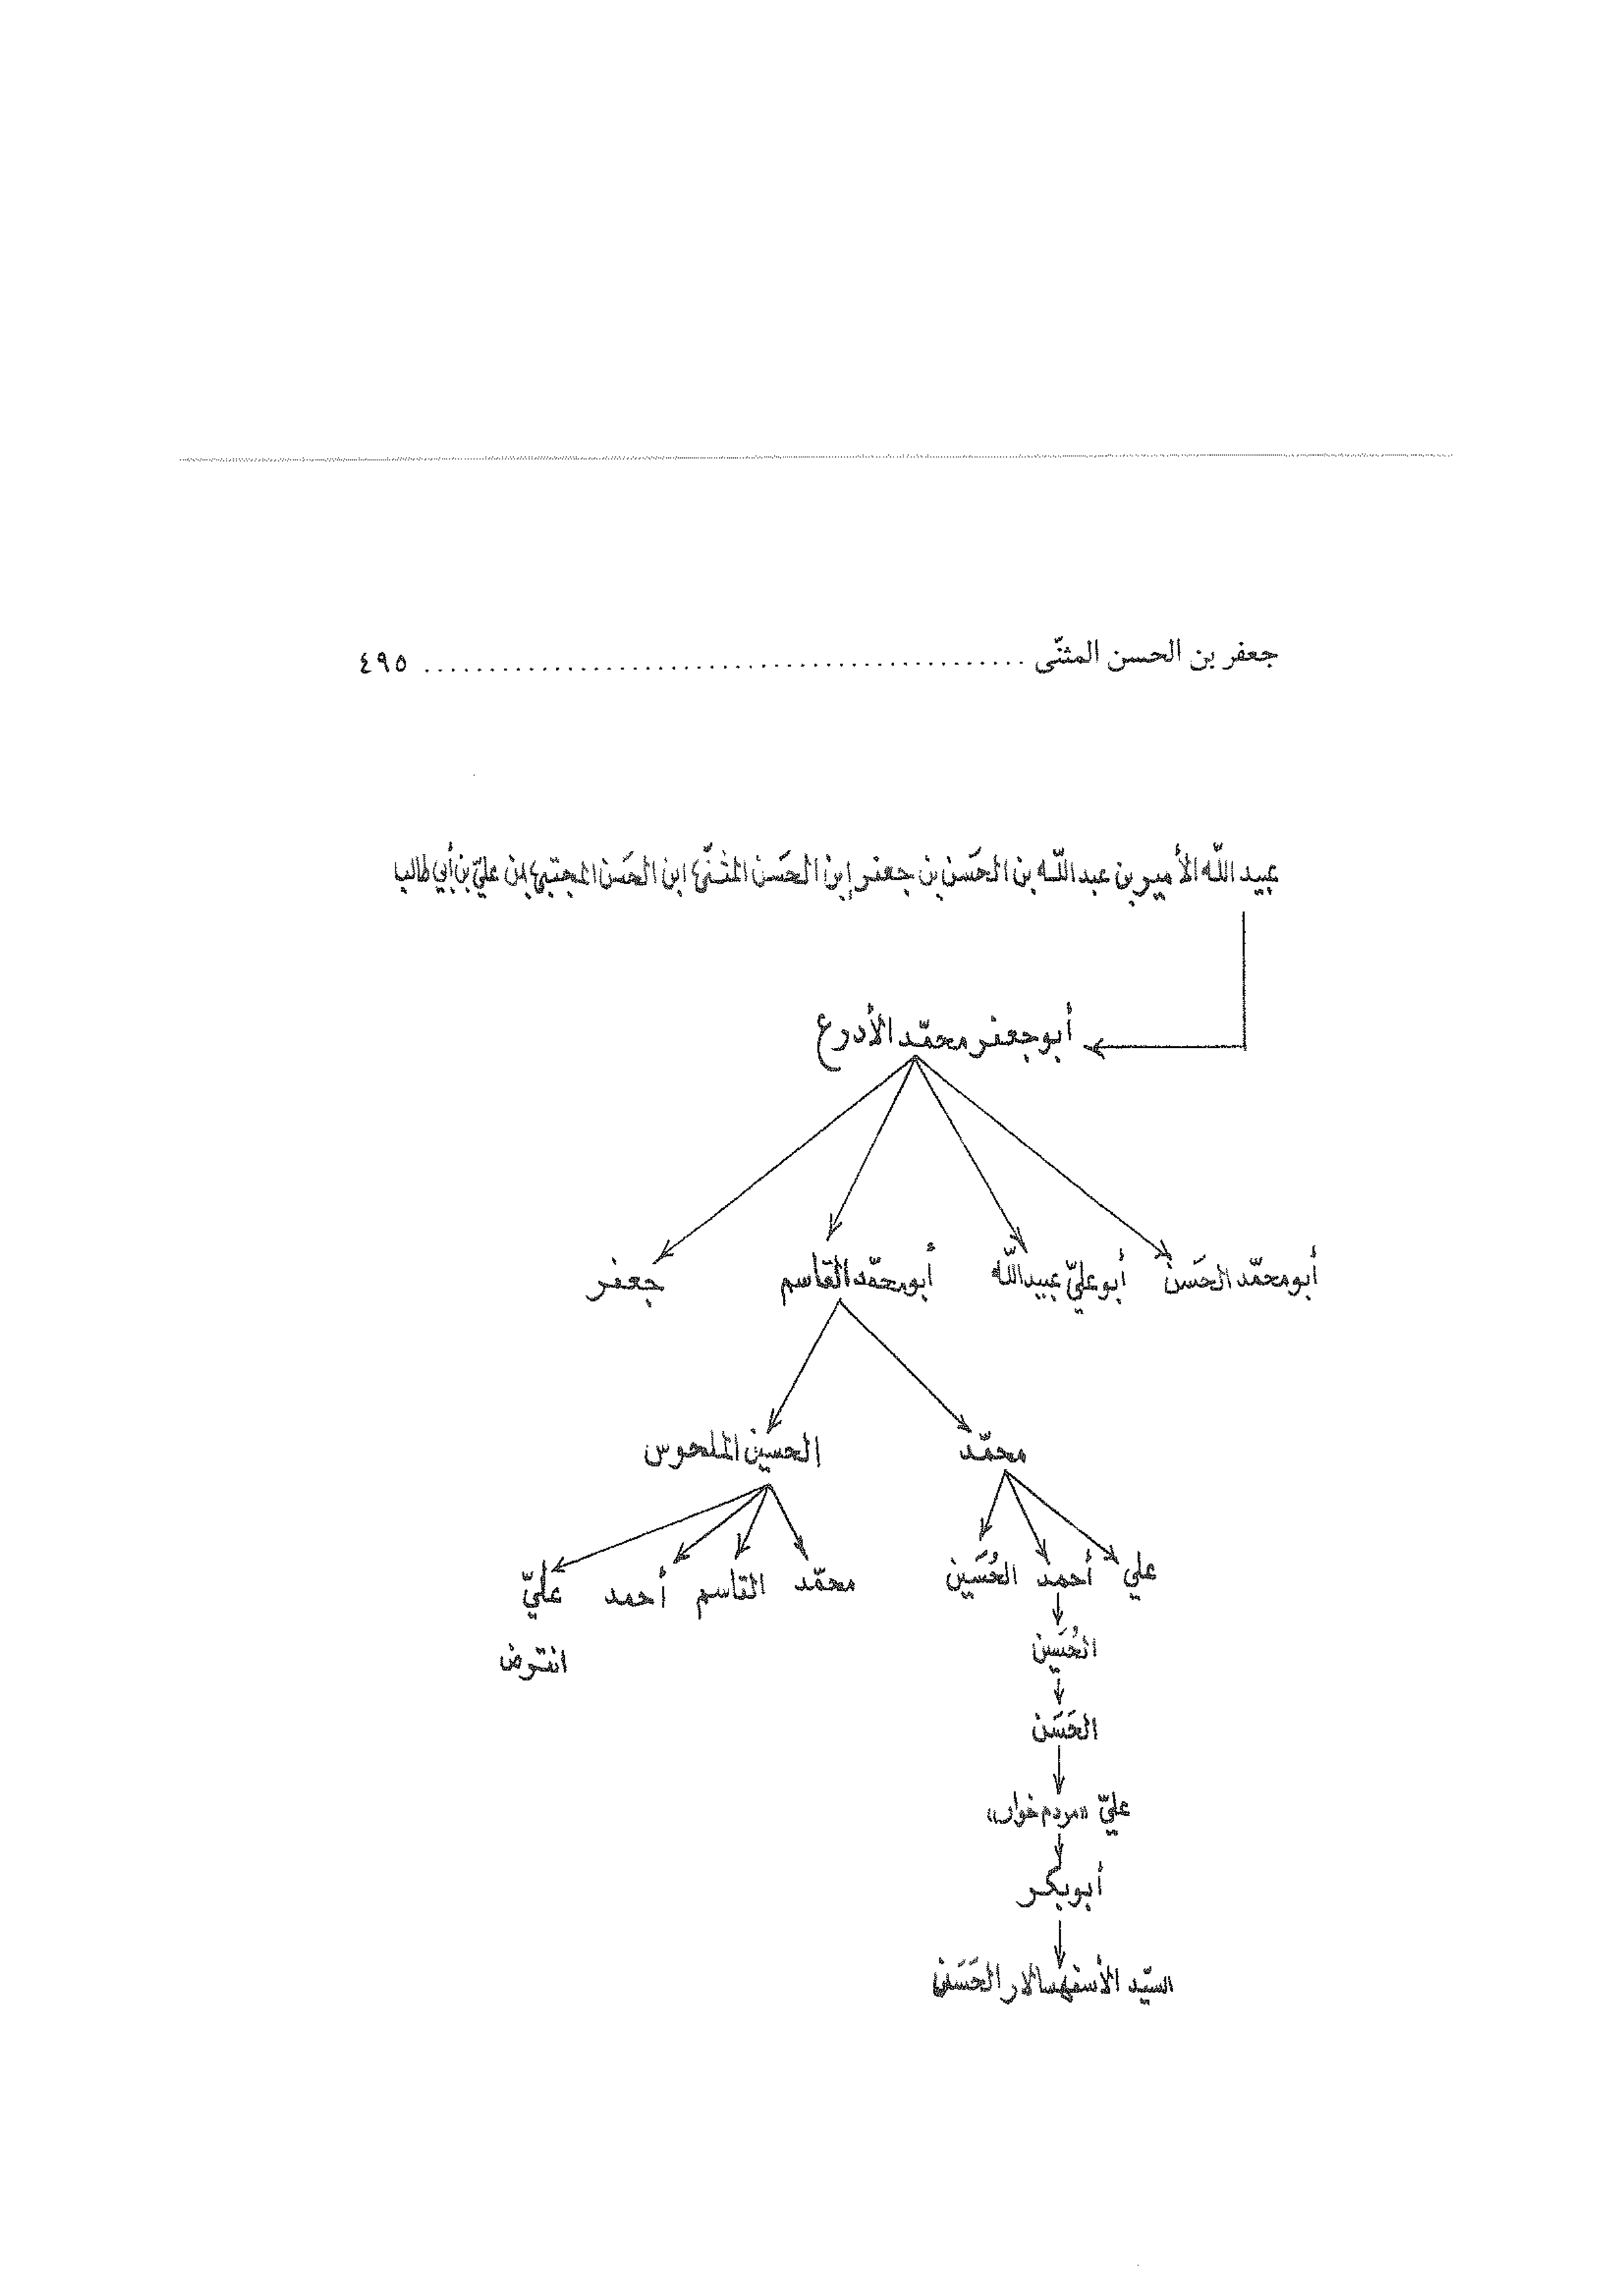 جعفر بن الحسن المثنّى ................................................ ٤٩٥
عبيد اللّه الأمير بن عبد اللّه بن الحَسَن بن جعفر إبن الحَسَن المثنّى ابن الحَسَن المجتبى بن عليّ بن أبي طالب
أبو جعفر محمّد الأدرع
أبو محمّد الحَسَن أبو عليّ عبيد اللّه أبو محمّد القاسم جعفر
محمّد الحسين الملحوس
علي أحمد الحُسَين محمّد القاسم أحمد عليّ
الحُسَين انقرض
الحَسَن
عليّ «مردم خوار»
أبو بكر
السيّد الأسفهسالار الحَسَن